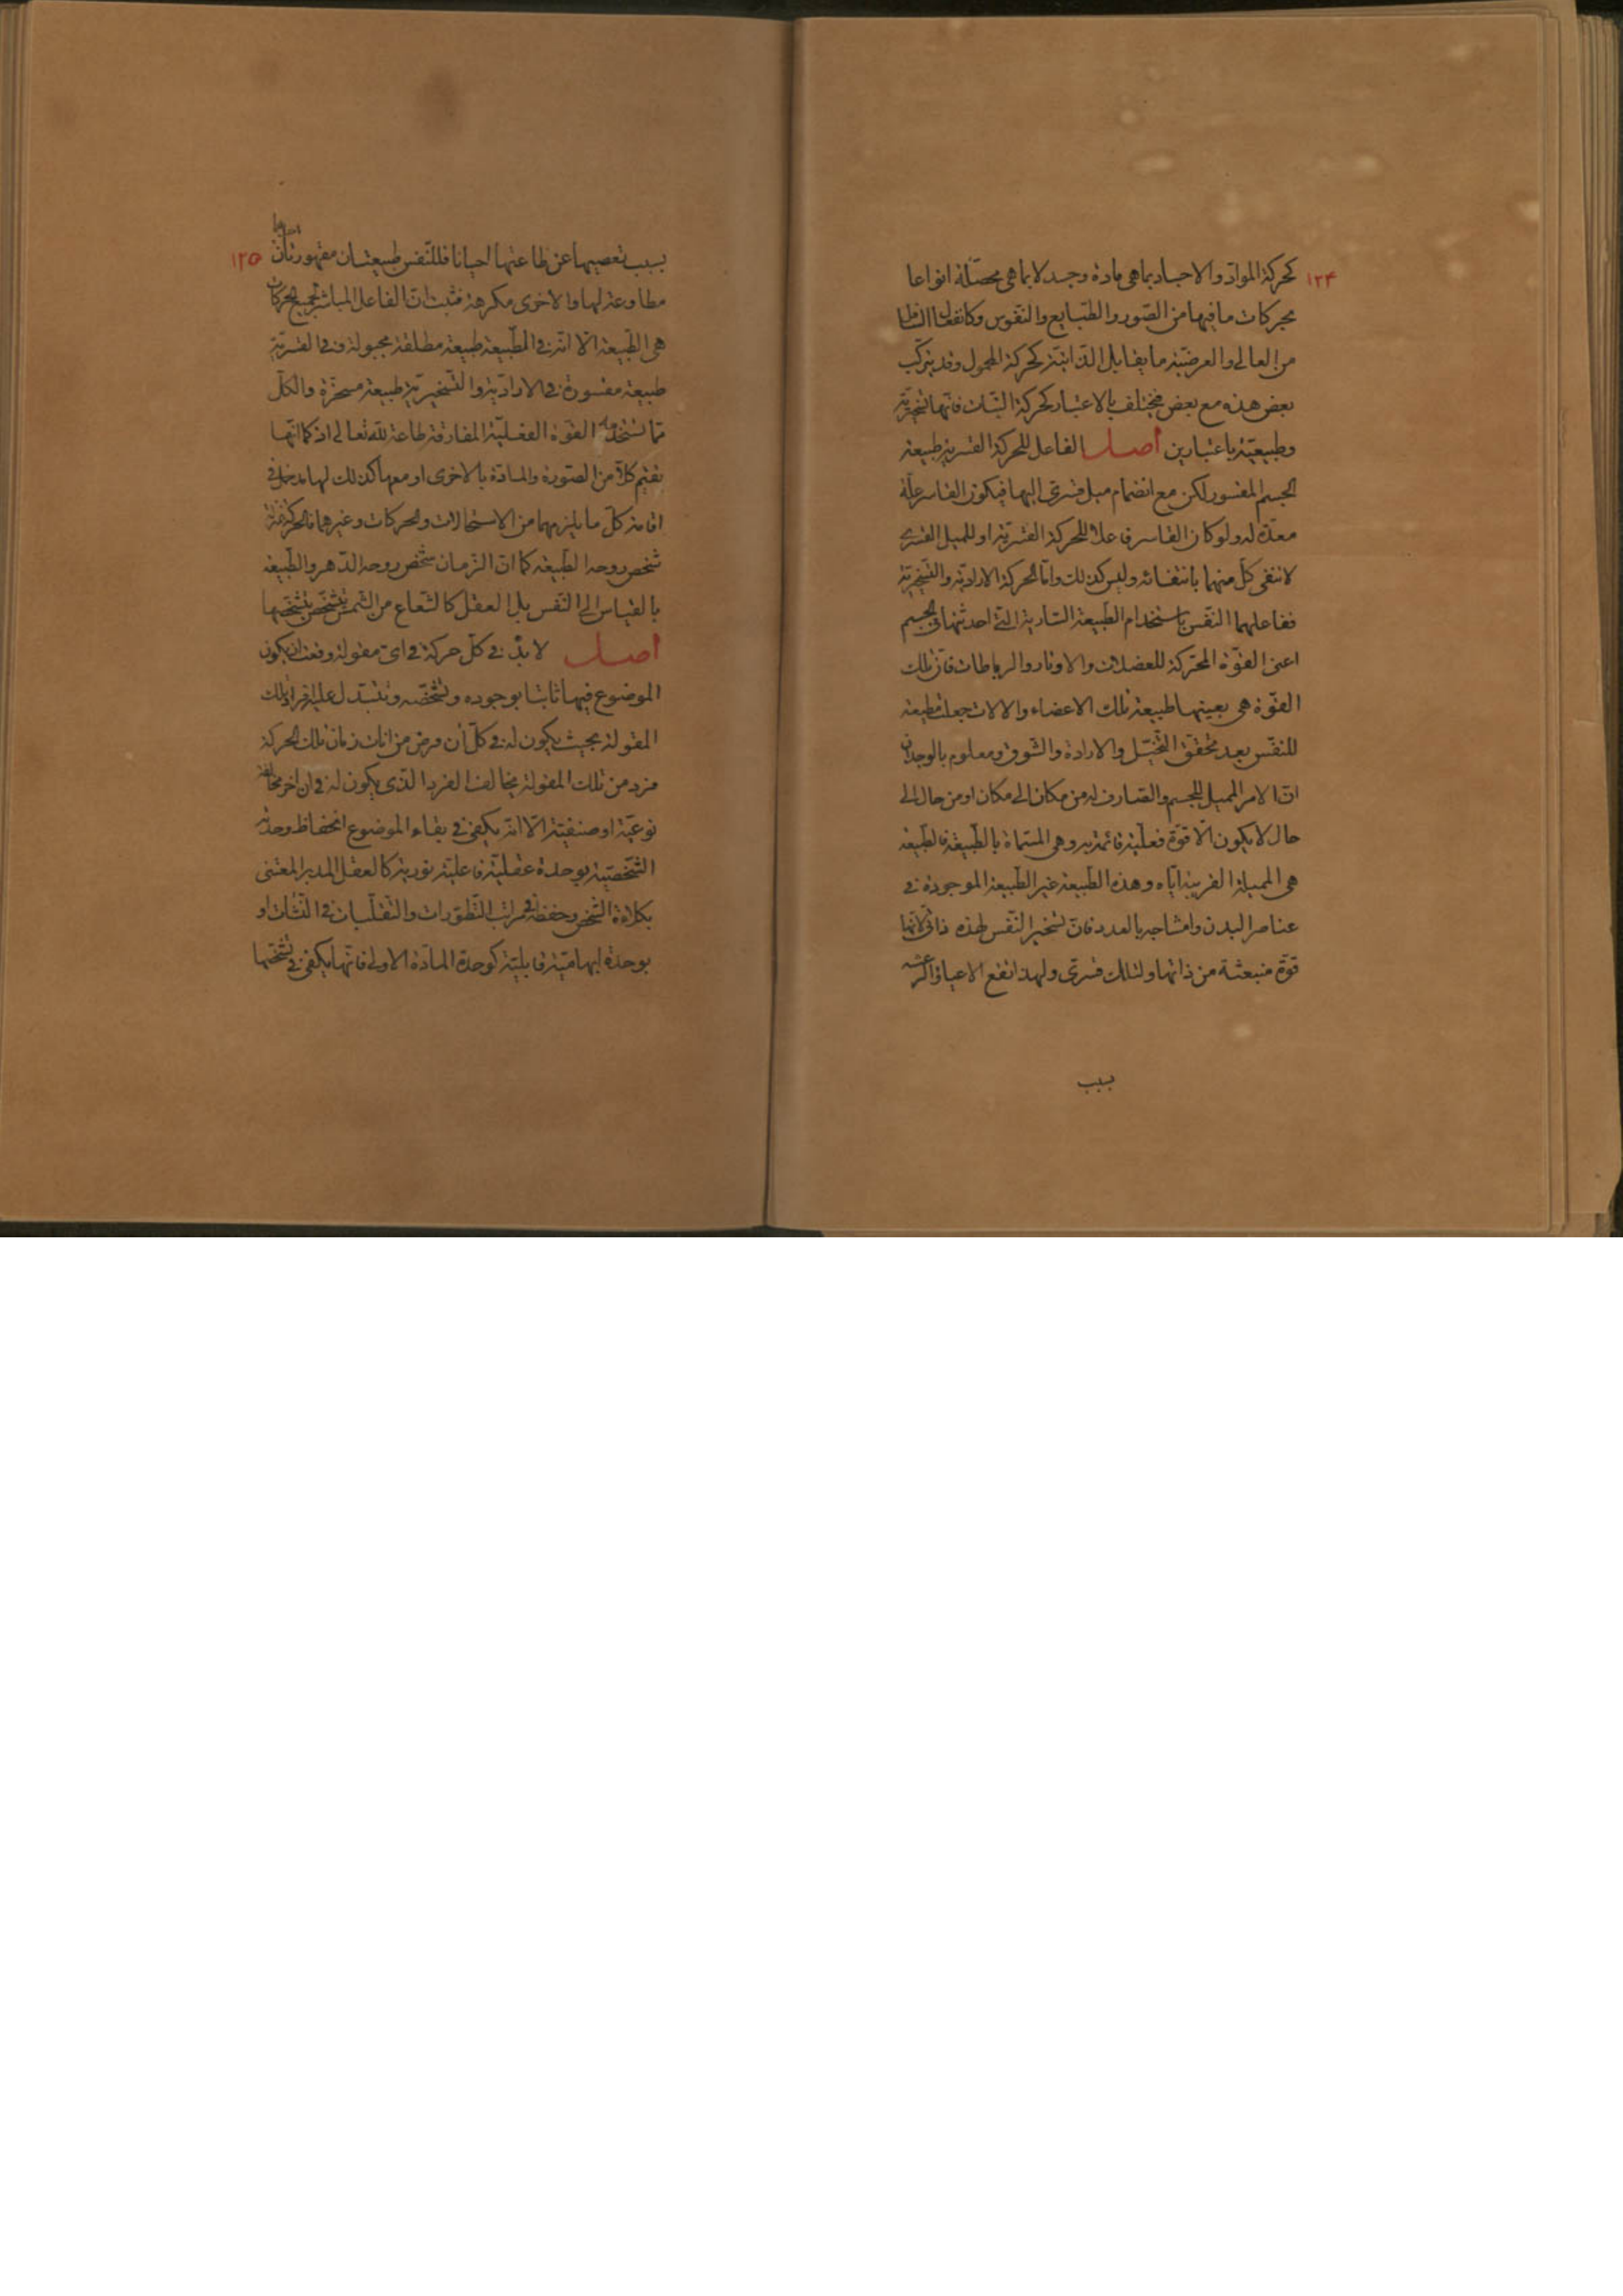 ١٢٤
كحركة الموادّ والاجساد بماهى مادة وجسد لا بماهى محصّلة انواعا
بحركات ما فيها من الصّور والطّبايع والنفوس وكانفعال السّافل
من العالى والعرضيّة ما يقابل الذّاتيّة كحركة المحمول وقد يتركّب
بعض هذه مع بعض فيختلف بالاعتبار كحركة النّبات فانّها تسخيريّة
وطبيعيّة باعتبارين اصل الفاعل للحركة القسريّة طبيعة
الجسم المقسور لكن مع انضمام ميل قسرىّ اليها فيكون القاسر علّة
معدّة له ولو كان القاسر فاعلا للحركة القسريّة او للميل القسرى
لانتفى كلّ منهما بانتفائه وليس كذلك وامّا الحركة الاراديّة والتّسخيريّة
ففاعلهما النّفس باستخدام الطّبيعة السّارية الّتى احدثتها فى الجسم
اعنى القوّة المحرّكة للعضلات والاوتار والرباطات فانّ تلك
القوّة هى بعينها طبيعة تلك الاعضاء والالات جعلت مطيعة
للنفس بعد تحقّق التّخيّل والارادة والشّوق ومعلوم بالوجدان
انّ الامر المميل للجسم والصّارف له من مكان الى مكان او من حال الى
حال لا يكون الّا قوّة فعليّة قائمة به وهى المسمّاة بالطّبيعة فالطّبيعة
هى المميلة القريبة ايّاه وهذه الطّبيعة غير الطّبيعة الموجودة فى
عناصر البدن وامشاجه بالعدد فانّ تسخير النّفس لهذه ذاتى لانّها
قوّة منبعثة من ذاتها ولتلك قسرىّ ولهذا تقع الاعياء والرّعشة
بسبب
١٢٥
بسبب تعصيها عن طاعتها احيانا فللنّفس طبيعتان مقهورتان احدهما
مطاوعة لها والاخرى مكرهة فثبت انّ الفاعل المباشر لجميع الحركات
هى الطّبيعة الّا انّه فى الطّبيعة طبيعة مطلقة مجبولة وفى القسريّة
طبيعة مقسورة فى الاراديّة والتّسخيريّة طبيعة مسخّرة والكلّ
ممّا تستخدمه القوّة العقليّة المفارقة طاعة للّه تعالى اذ كما انّها
تقيم كلّا من الصّورة والمادّة بالاخرى او معها كذلك لها مدخل فى
اقامة كلّ ما يلزمهما من الاستحالات والحركات وغيرهما فالحركة بمنزلة
شخص روحه الطّبيعة كما انّ الزّمان شخص روحه الدّهر والطّبيعة
بالقياس الى النّفس بل العقل كالشّعاع من الشّمس يتشخّص بتشخّصها
اصل لا بدّ فى كلّ حركة فى اىّ مقولة وقعت ان يكون
الموضوع فيها ثابتا بوجوده وتشخّصه وتتبدّل عليه افراد تلك
المقولة بحيث يكون له فى كلّ آن فرض من انات زمان تلك الحركة
فرد من تلك المقولة يخالف الفرد الّذى يكون له فى ان اخر مخالفة
نوعيّة او صنفيّة الّا انّه يكفى فى بقاء الموضوع انحفاظ وحدته
الشّخصيّة بوحدة عقليّة فاعليّة نورية كالعقل المدبر المعتنى
بكلاءة الشّخص وحفظه فى مراتب التّطوّرات والتقلّبات فى النّشآت او
بوحدة ابهاميّة قابليّة كوحدة المادّة الاولى فانّها يكفى فى تشخّصها